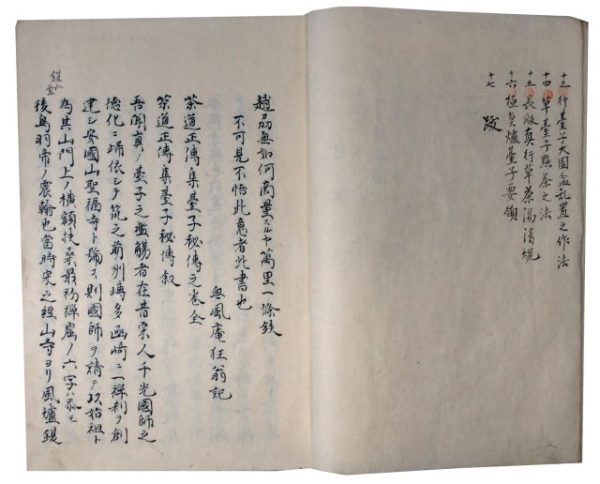 十三 行臺子大圓盆乱置之作法
十四 草臺子點茶之法
十五 長板真行草茶湯清規
十六 極真爐臺子要領
十七 跋
趙州無如何商量スルヤ萬里一條鉄
不可見不悟此意者此書也
無風庵狂翁記
茶道正傳集臺子秘傳之巻全
茶道正傳集臺子秘傳叙
吾聞真ノ臺子之濫觴者在昔宋人千光國師之
徳化ニ歸依シテ筑之前州博多函崎ニ一禅刹ヲ創
建シ安國山聖福寺ト號ス則國師ヲ請テ以始祖ト
為其山門上ノ横額扶桑最初禅窟ノ六字ハ忝モ
後鳥羽帝ノ宸翰也當時宋之經山寺ヨリ風爐鍑